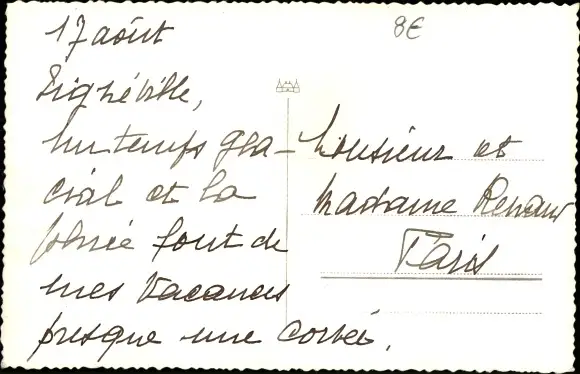 17 août
8€
Tighéville,
Un temps gla-
cial et la
pluie font de
mes vacances
presque une corvée.
Monsieur et
Madame Renaud
Paris